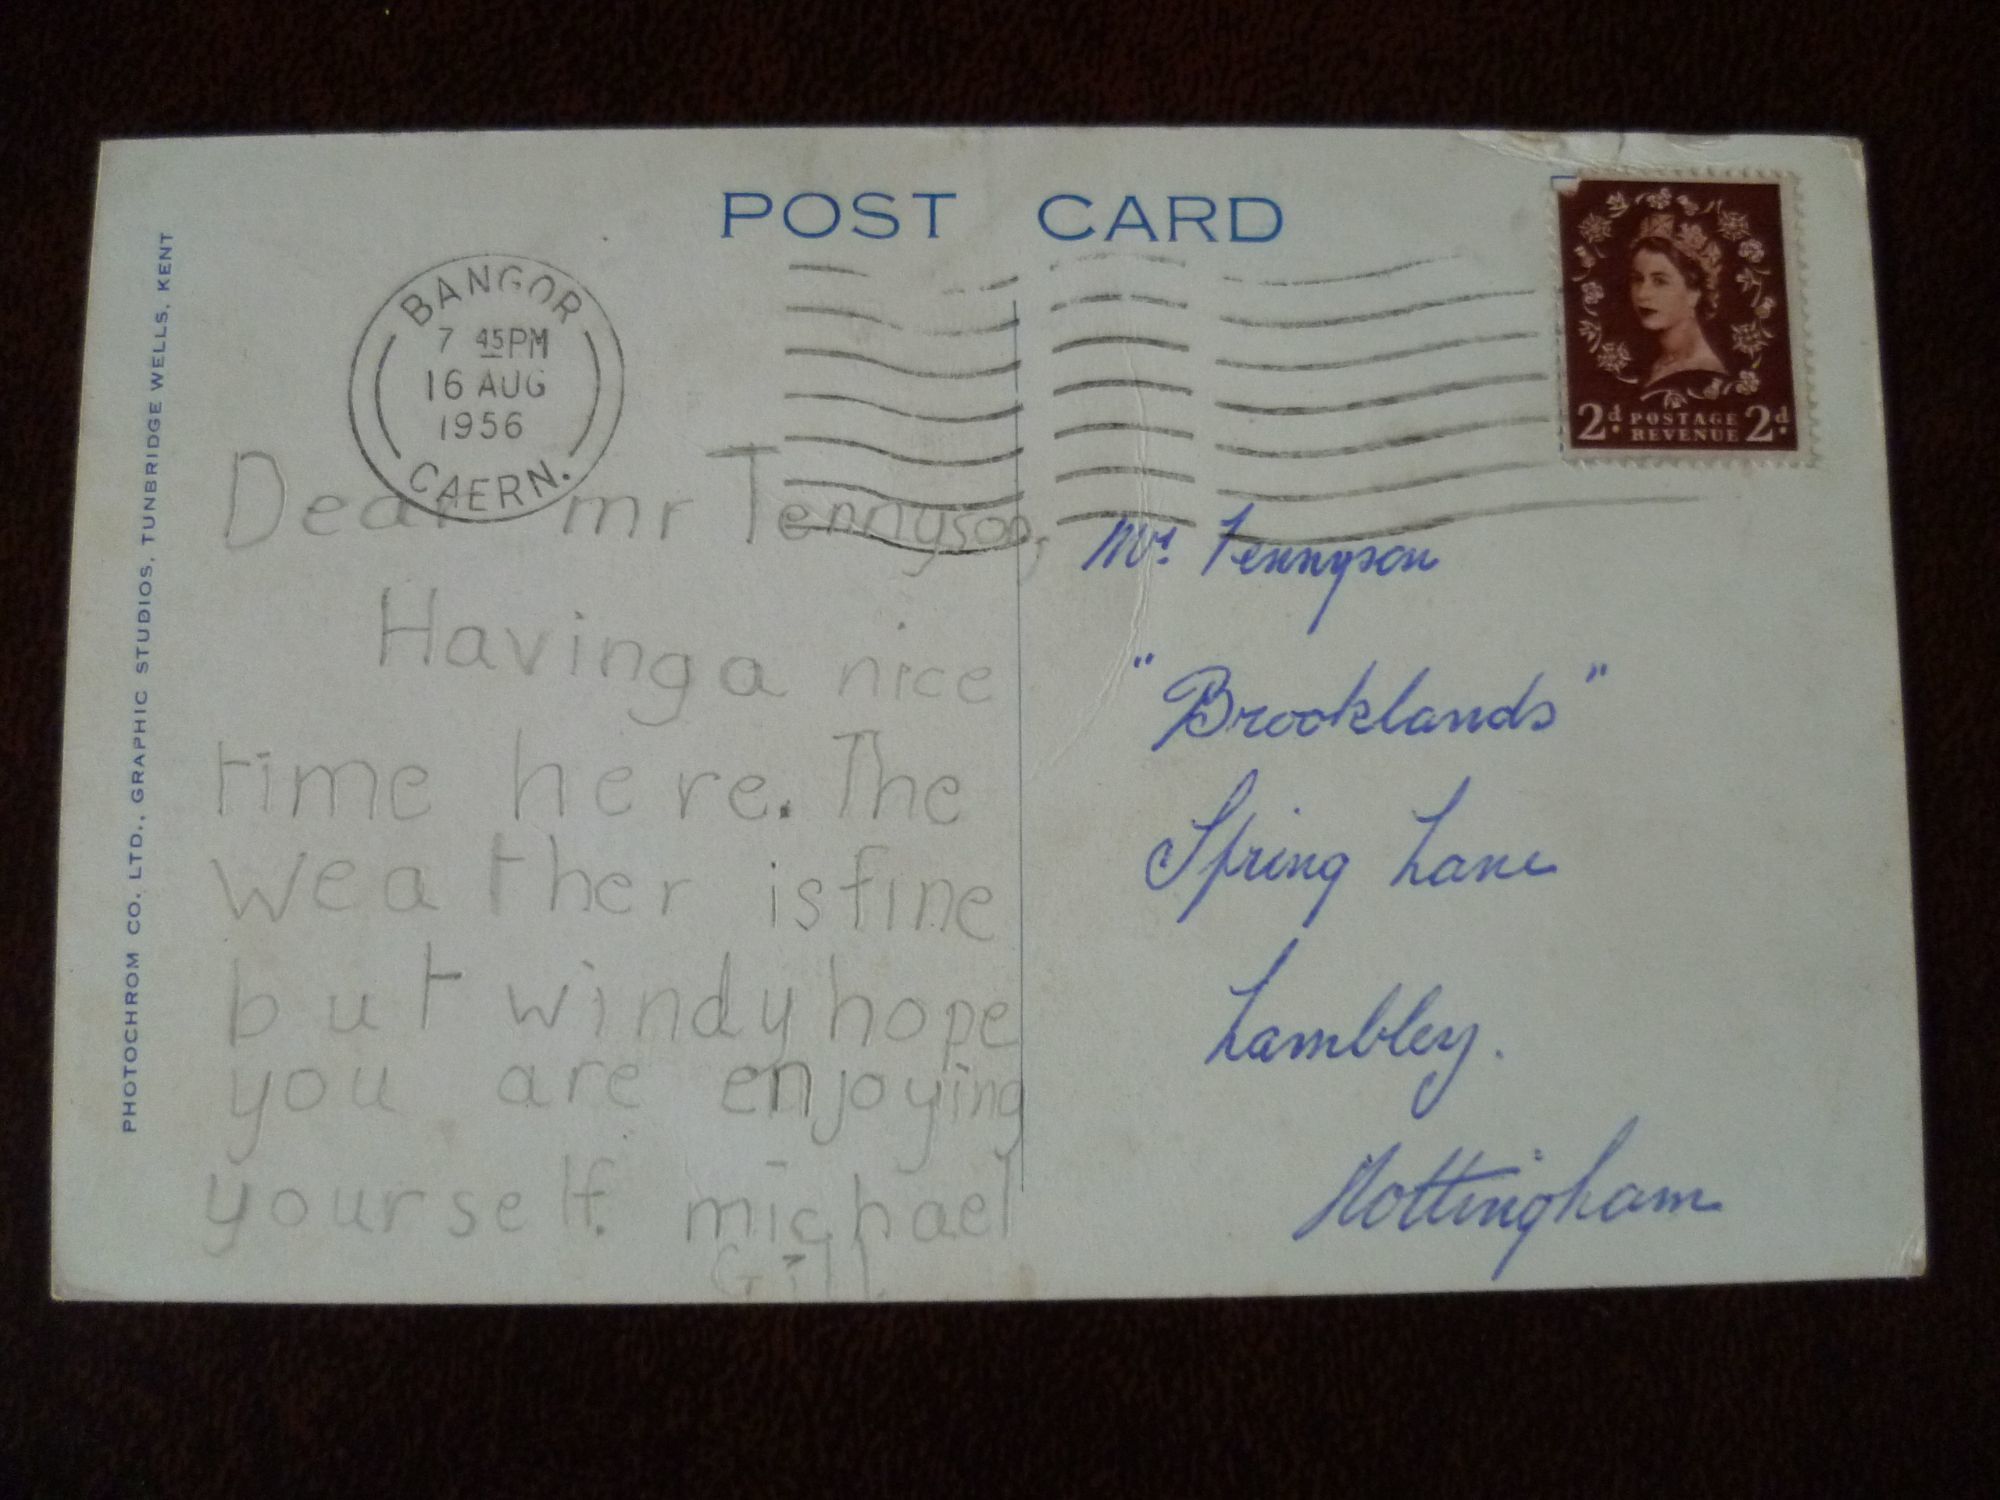 POST CARD
BANGOR
7 45PM
16 AUG
1956
CAERN.
2d. POSTAGE 2d.
REVENUE
PHOTOCHROM CO. LTD., GRAPHIC STUDIOS, TUNBRIDGE WELLS, KENT
Dear mr Tennyson,
Having a nice
time here. The
weather is fine
but windy hope
you are enjoying
yourself. michael
Gill
Mr. Tennyson
"Brooklands"
Spring Lane
Lambley.
Nottingham